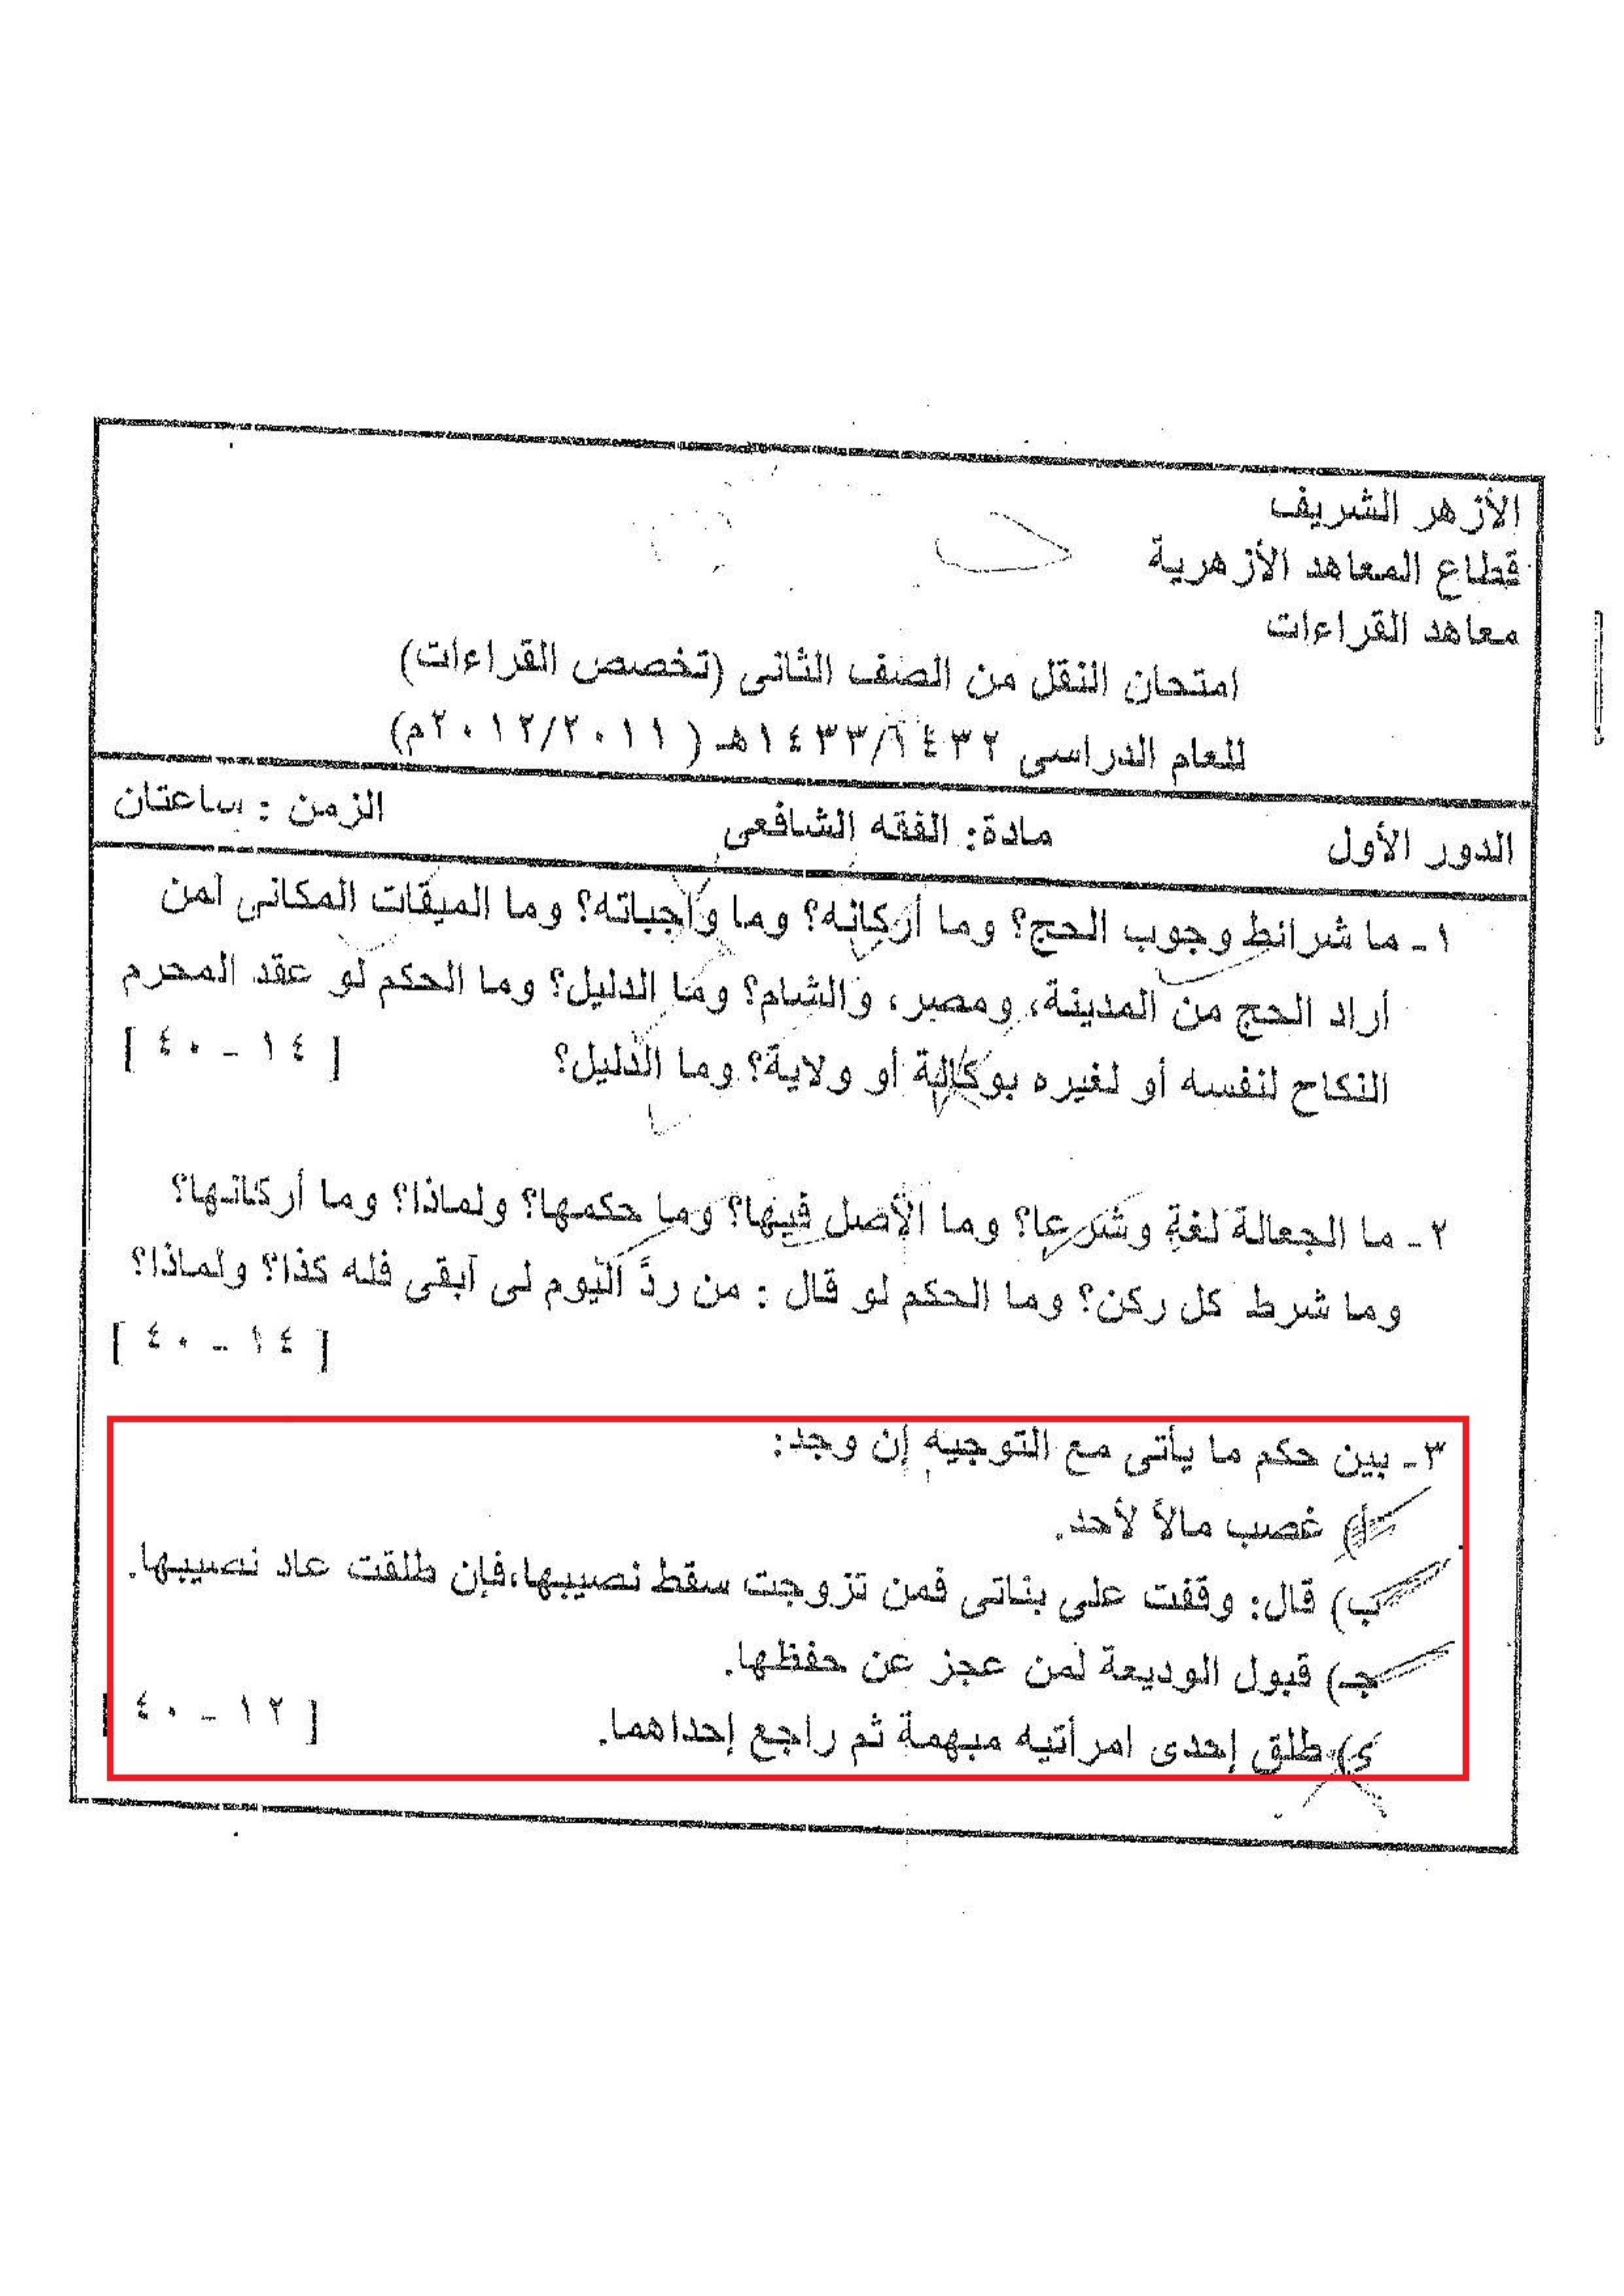 الأزهر الشريف
قطاع المعاهد الأزهرية
معاهد القراءات
امتحان النقل من الصف الثانى (تخصص القراءات)
للعام الدراسى ١٤٣٣/١٤٣٢هـ (٢٠١٢/٢٠١١م)
الدور الأول مادة: الفقه الشافعى الزمن : ساعتان
١- ما شرائط وجوب الحج؟ وما أركانه؟ وما واجباته؟ وما الميقات المكانى لمن
أراد الحج من المدينة، ومصر، والشام؟ وما الدليل؟ وما الحكم لو عقد المحرم
النكاح لنفسه أو لغيره بوكالة أو ولاية؟ وما الدليل؟ [ ١٤ - ٤٠ ]
٢- ما الجعالة لغة وشرعا؟ وما الأصل فيها؟ وما حكمها؟ ولماذا؟ وما أركانها؟
وما شرط كل ركن؟ وما الحكم لو قال : من ردَّ اليوم لى آبقى فله كذا؟ ولماذا؟
[ ١٤ - ٤٠ ]
٣- بين حكم ما يأتى مع التوجيه إن وجد:
أ) غصب مالاً لأحد.
ب) قال: وقفت على بناتى فمن تزوجت سقط نصيبها،فإن طلقت عاد نصيبها.
جـ) قبول الوديعة لمن عجز عن حفظها.
ى) طلق إحدى امرأتيه مبهمة ثم راجع إحداهما. [ ١٢ - ٤٠